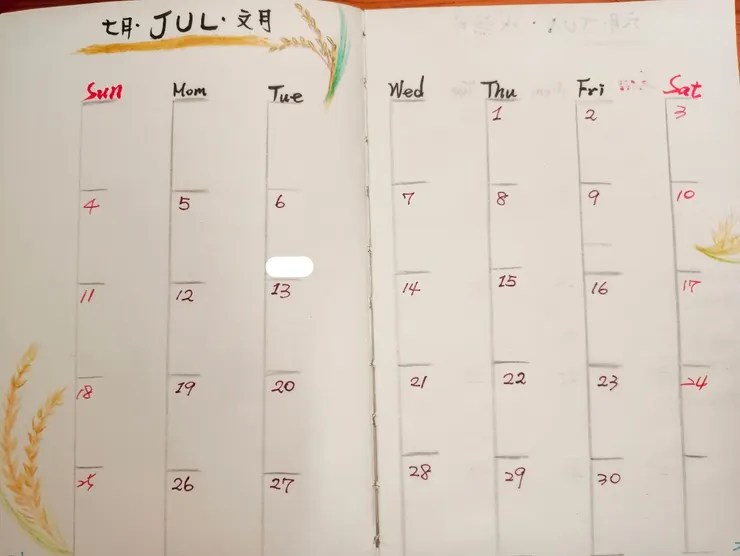 七月·JUL·文月
Sun Mom Tue Wed Thu Fri Sat
1 2 3
4 5 6 7 8 9 10
11 12 13 14 15 16 17
18 19 20 21 22 23 24
25 26 27 28 29 30